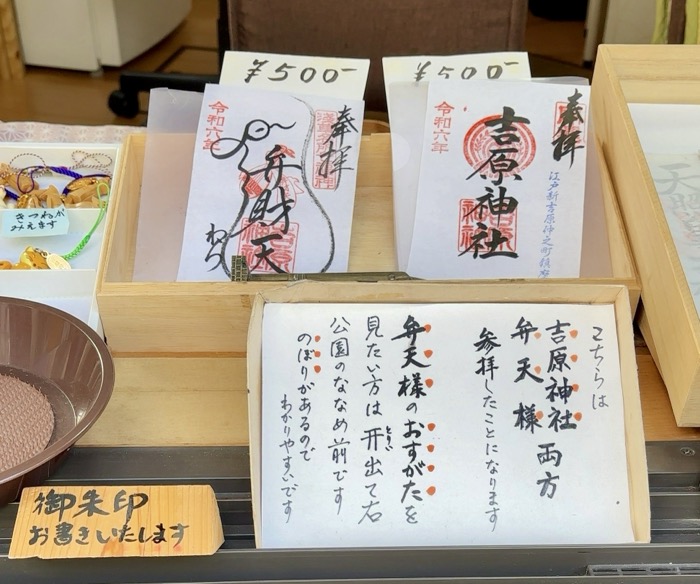 ¥500-
¥500-
奉拝
弁財天
令和六年
奉拝
吉原神社
令和六年
きつねが
みえます
こちらは
吉原神社
弁天様
両方
参拝したことになります
弁天様のおすがたを
見たい方は
出て右
公園のななめ前です
のぼりがあるので
わかりやすいです
御朱印
お書きいたします